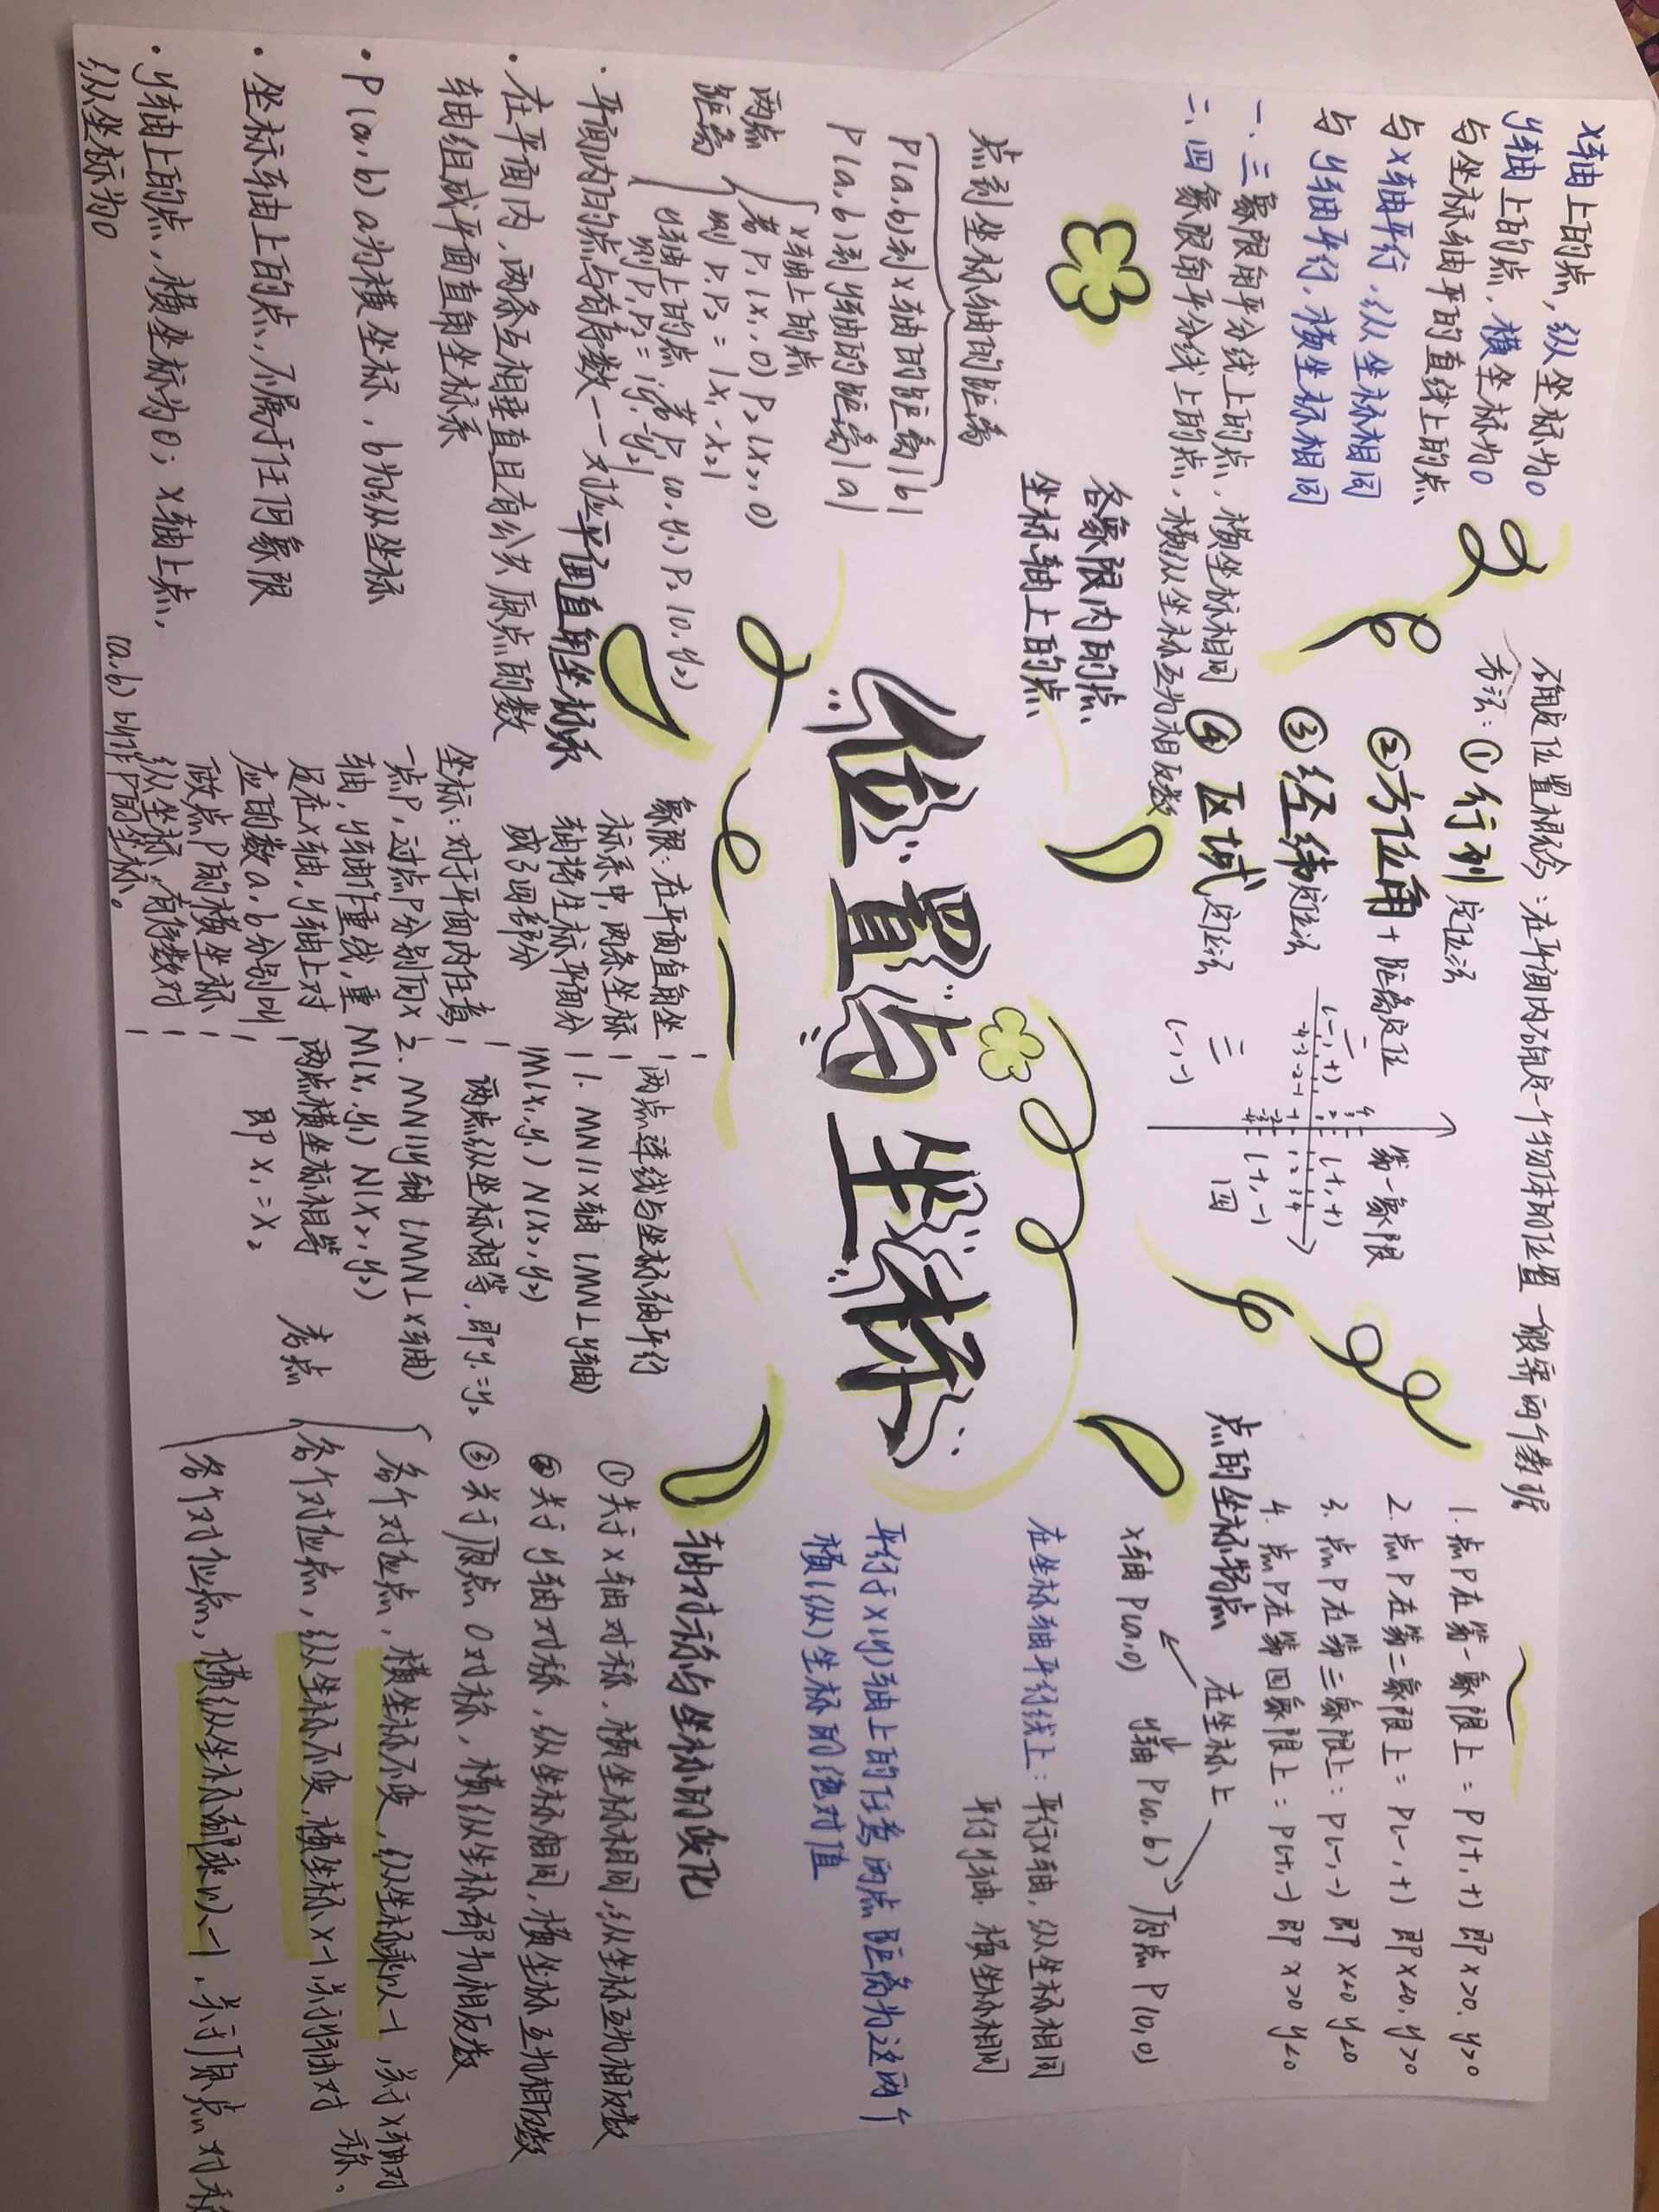 x轴上的点，纵坐标为0
y轴上的点，横坐标为0
与坐标轴平的直线上的点
与x轴平行，纵坐标相同
与y轴平行，横坐标相同
一、三象限角平分线上的点，横坐标相同
二、四象限角平分线上的点，横纵坐标互为相反数
确定位置概念：在平面内确定一个物体的位置一般需两个数据
方法：①行列定位法
②方位角+距离定位
③经纬定位法
④区域定位法
第一象限
(+,+)
二
(-,+)
三
(-,-)
四
(+,-)
-4-3-2-1 1 2 3 4
1.点P在第一象限上=P(+,+)即x>0,y>0
2.点P在第二象限上=P(-,+)即x<0,y>0
3.点P在第三象限上:P(-,-)即x<0 y<0
4.点P在第四象限上:P(+,-)即P x>0 y<0
各象限内的点
坐标轴上的点
点的坐标特点
在坐标上
x轴P(a,0) y轴P(0,b) 原点P(0,0)
在坐标轴平行线上:平行x轴,纵坐标相同
平行y轴,横坐标相同
平行于x(y)轴上的任意两点距离为这两个
横(纵)坐标的绝对值
点到坐标轴的距离
P(a,b)到x轴的距离|b|
P(a,b)到y轴的距离|a|
位置与坐标
两点
距离
x轴上的点
若P₁(x₁,0)P₂(x₂,0)
则P₁P₂=|x₁-x₂|
y轴上的点 若P₁(0,y₁)P₂(0,y₂)
则P₁P₂=|y₁-y₂|
平面直角坐标系
·平面内的点与有序数一一对应
·在平面内,两条互相垂直且有公共原点的数
轴组成平面直角坐标系
·P(a,b)a为横坐标,b为纵坐标
·坐标轴上的点,不属于任何象限
·y轴上的点,横坐标为0；x轴上点,
纵坐标为0
象限:在平面直角坐
标系中,两条坐标
轴将坐标平面分
成了四部分
坐标:对于平面内任意
一点P,过点P分别向x
轴,y轴作垂线,垂
足在x轴,y轴上对
应的数a,b分别叫
做点P的横坐标
纵坐标,有序数对
(a,b)叫作P的坐标。
两点连线与坐标轴平行
1.MN∥x轴(MN⊥y轴)
M(x₁,y₁)N(x₂,y₂)
两点纵坐标相等,即y₁=y₂
2.MN∥y轴(MN⊥x轴)
M(x₁,y₁)N(x₂,y₂)
两点横坐标相等
即x₁=x₂
轴对称与坐标的变化
①关于x轴对称,横坐标相同,纵坐标互为相反数
②关于y轴对称,纵坐标相同,横坐标互为相反数
③关于原点O对称,横纵坐标都为相反数
考点
各个对应点,横坐标不变,纵坐标乘以-1,关于x轴对称
各个对应点,纵坐标不变,横坐标x-1,关于y轴对称。
各个对应点,横纵坐标都乘以-1,关于原点对称